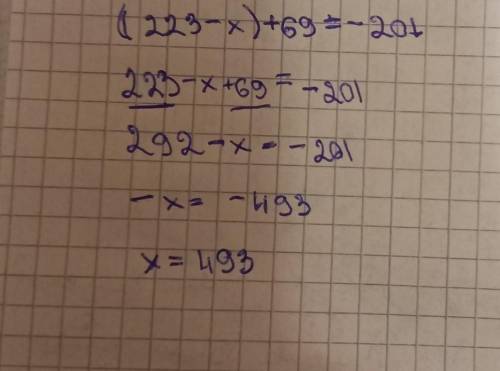 (223-x)+69=-201
223-x+69=-201
292-x=-201
-x=-493
x=493